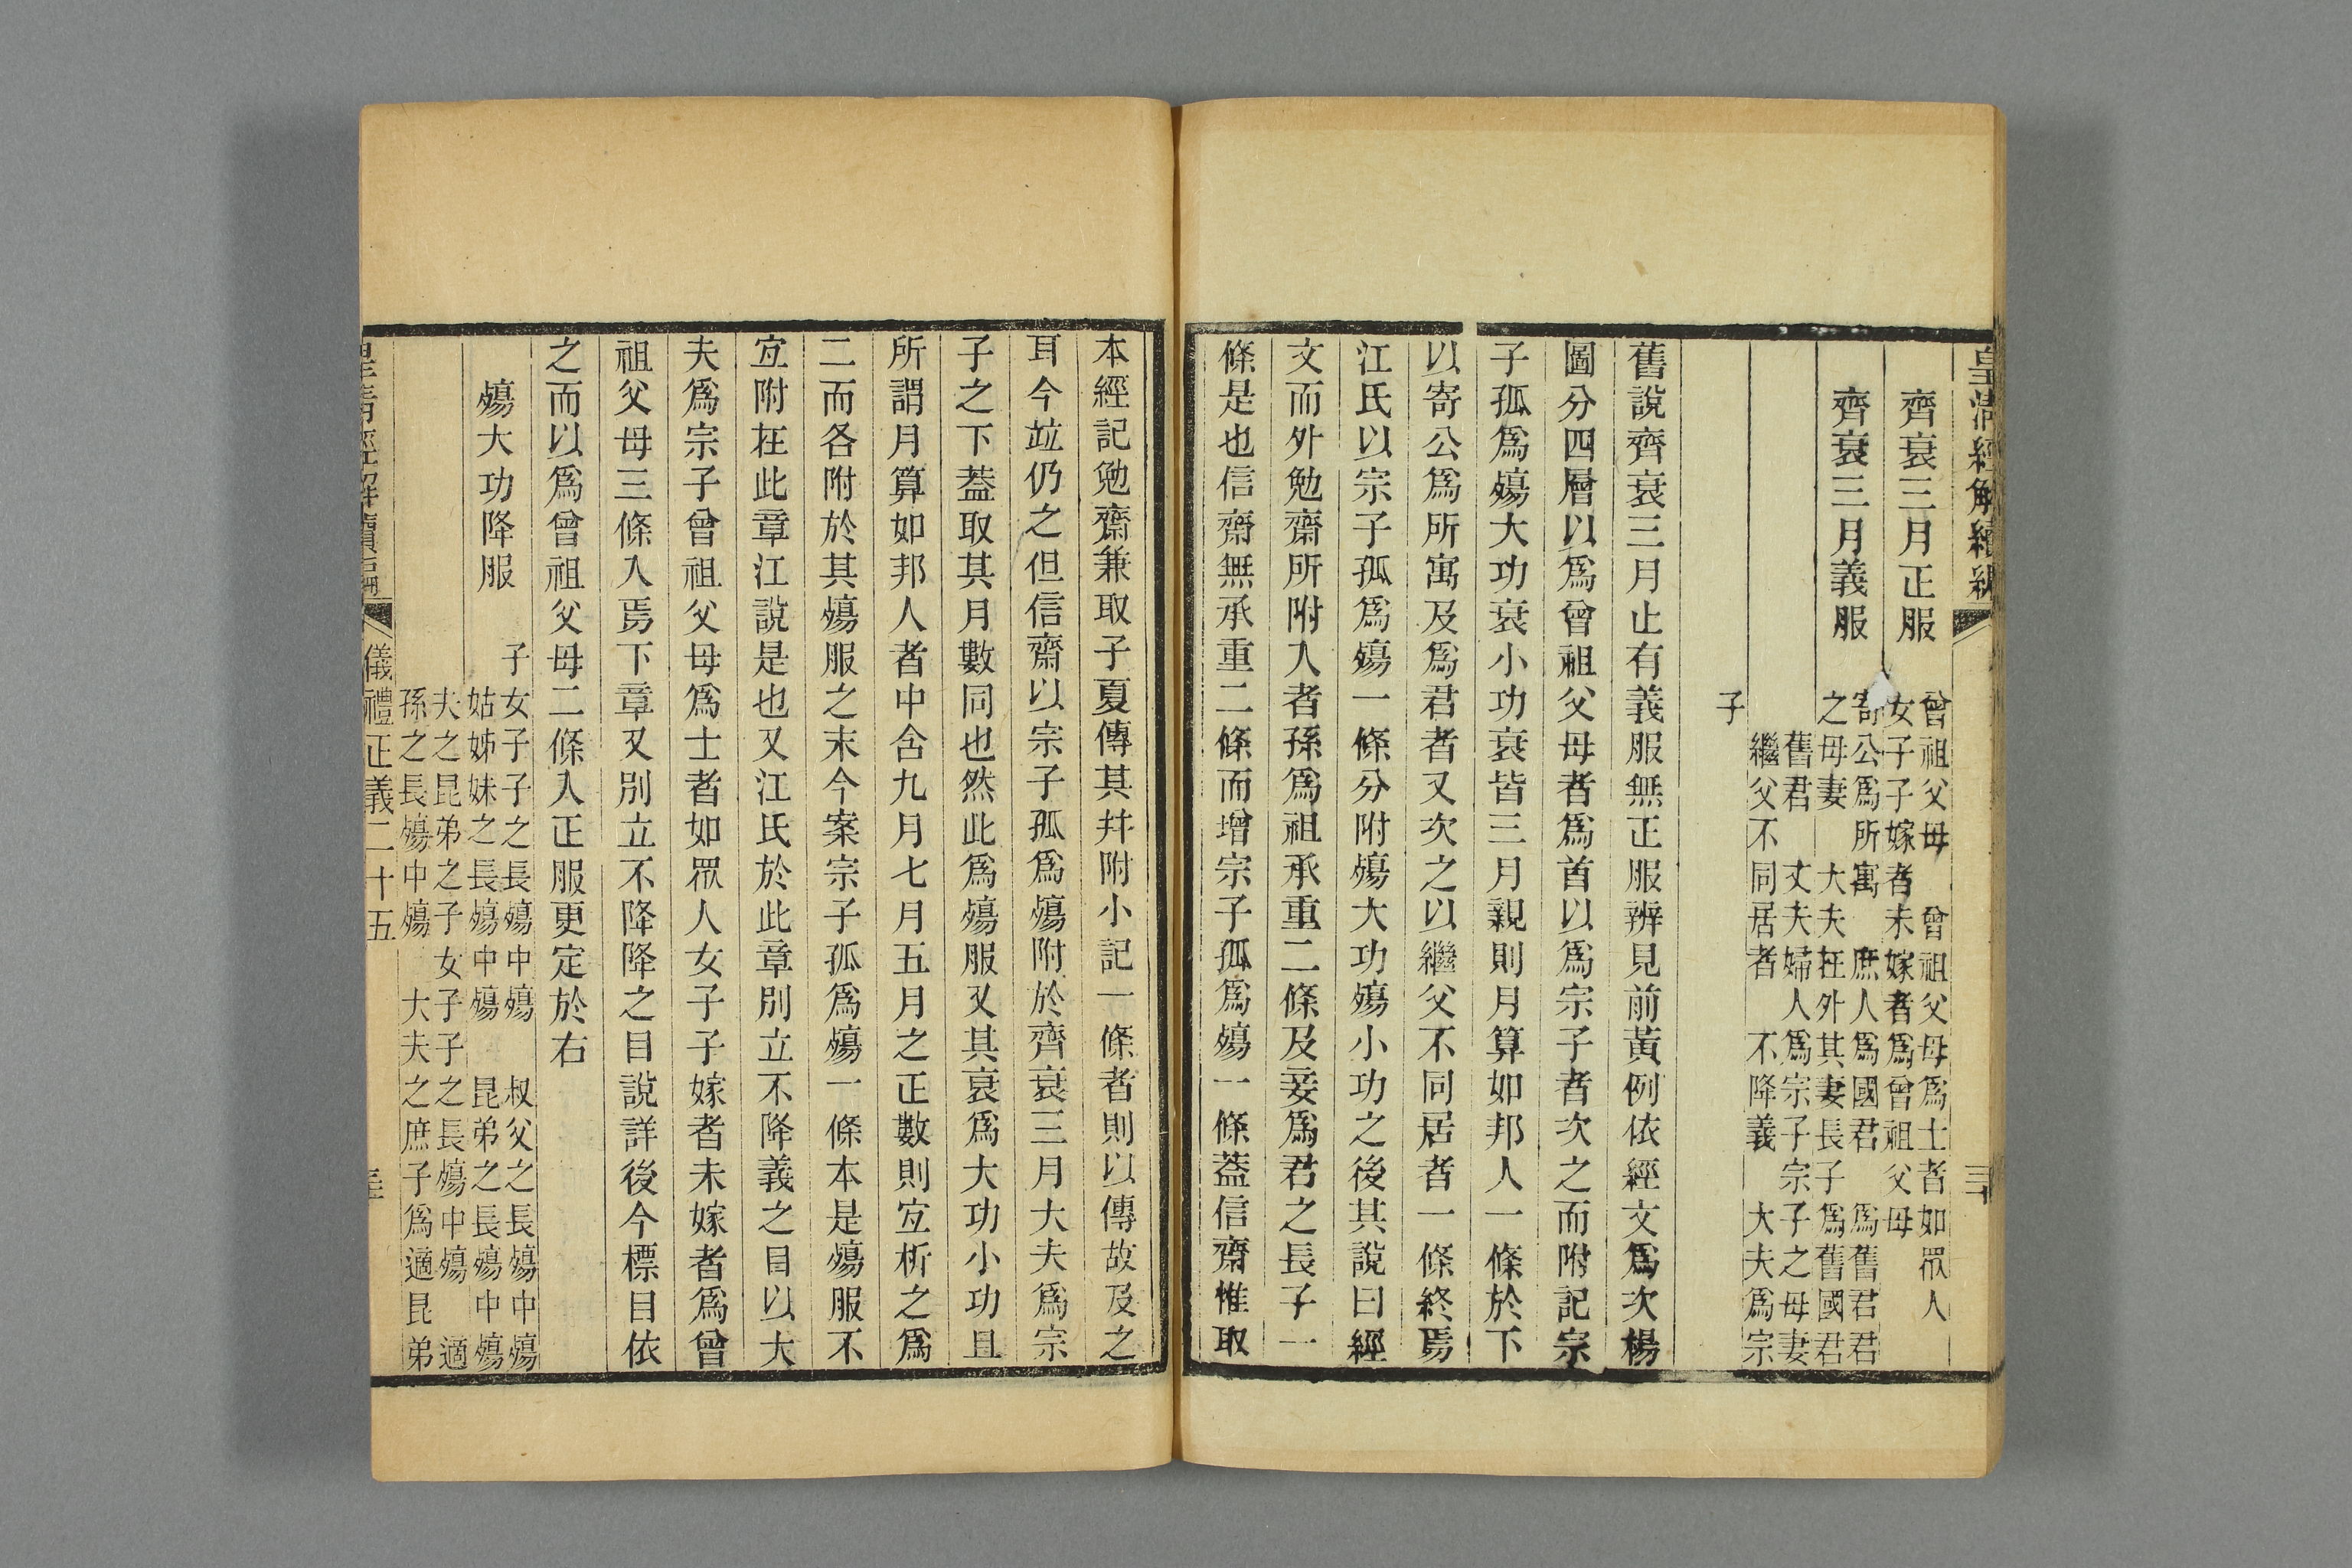 皇清經解續編
齊衰三月正服
曾祖父母　曾祖父母爲士者如眾人
女子子嫁者未嫁者爲曾祖父母
齊衰三月義服
寄公爲所寓　庶人爲國君　爲舊君君
之母妻　大夫在外其妻長子爲舊國君
舊君　丈夫婦人爲宗子宗子之母妻
繼父不同居者　不降義　大夫爲宗
子
舊說齊衰三月止有義服無正服辨見前黃例依經文爲次楊
圖分四層以爲曾祖父母者爲首以爲宗子者次之而附記宗
子孤爲殤大功衰小功衰皆三月親則月算如邦人一條於下
以寄公爲所寓及爲君者又次之以繼父不同居者一條終焉
江氏以宗子孤爲殤一條分附殤大功殤小功之後其說曰經
文而外勉齋所附入者孫爲祖承重二條及妾爲君之長子一
條是也信齋無承重二條而增宗子孤爲殤一條蓋信齋惟取
本經記勉齋兼取子夏傳其幷附小記一條者則以傳故及之
耳今竝仍之但信齋以宗子孤爲殤附於齊衰三月大夫爲宗
子之下蓋取其月數同也然此爲殤服又其衰爲大功小功且
所謂月算如邦人者中含九月七月五月之正數則宜析之爲
二而各附於其殤服之末今案宗子孤爲殤一條本是殤服不
宜附在此章江說是也又江氏於此章別立不降義之目以大
夫爲宗子曾祖父母爲士者如眾人女子子嫁者未嫁者爲曾
祖父母三條入焉下章又別立不降降之目說詳後今標目依
之而以爲曾祖父母二條入正服更定於右
殤大功降服
子
女子子之長殤中殤　叔父之長殤中殤
姑姊妹之長殤中殤　昆弟之長殤中殤
夫之昆弟之子女子子之長殤中殤　適
孫之長殤中殤　大夫之庶子爲適昆弟
皇清經解續編　儀禮正義二十五